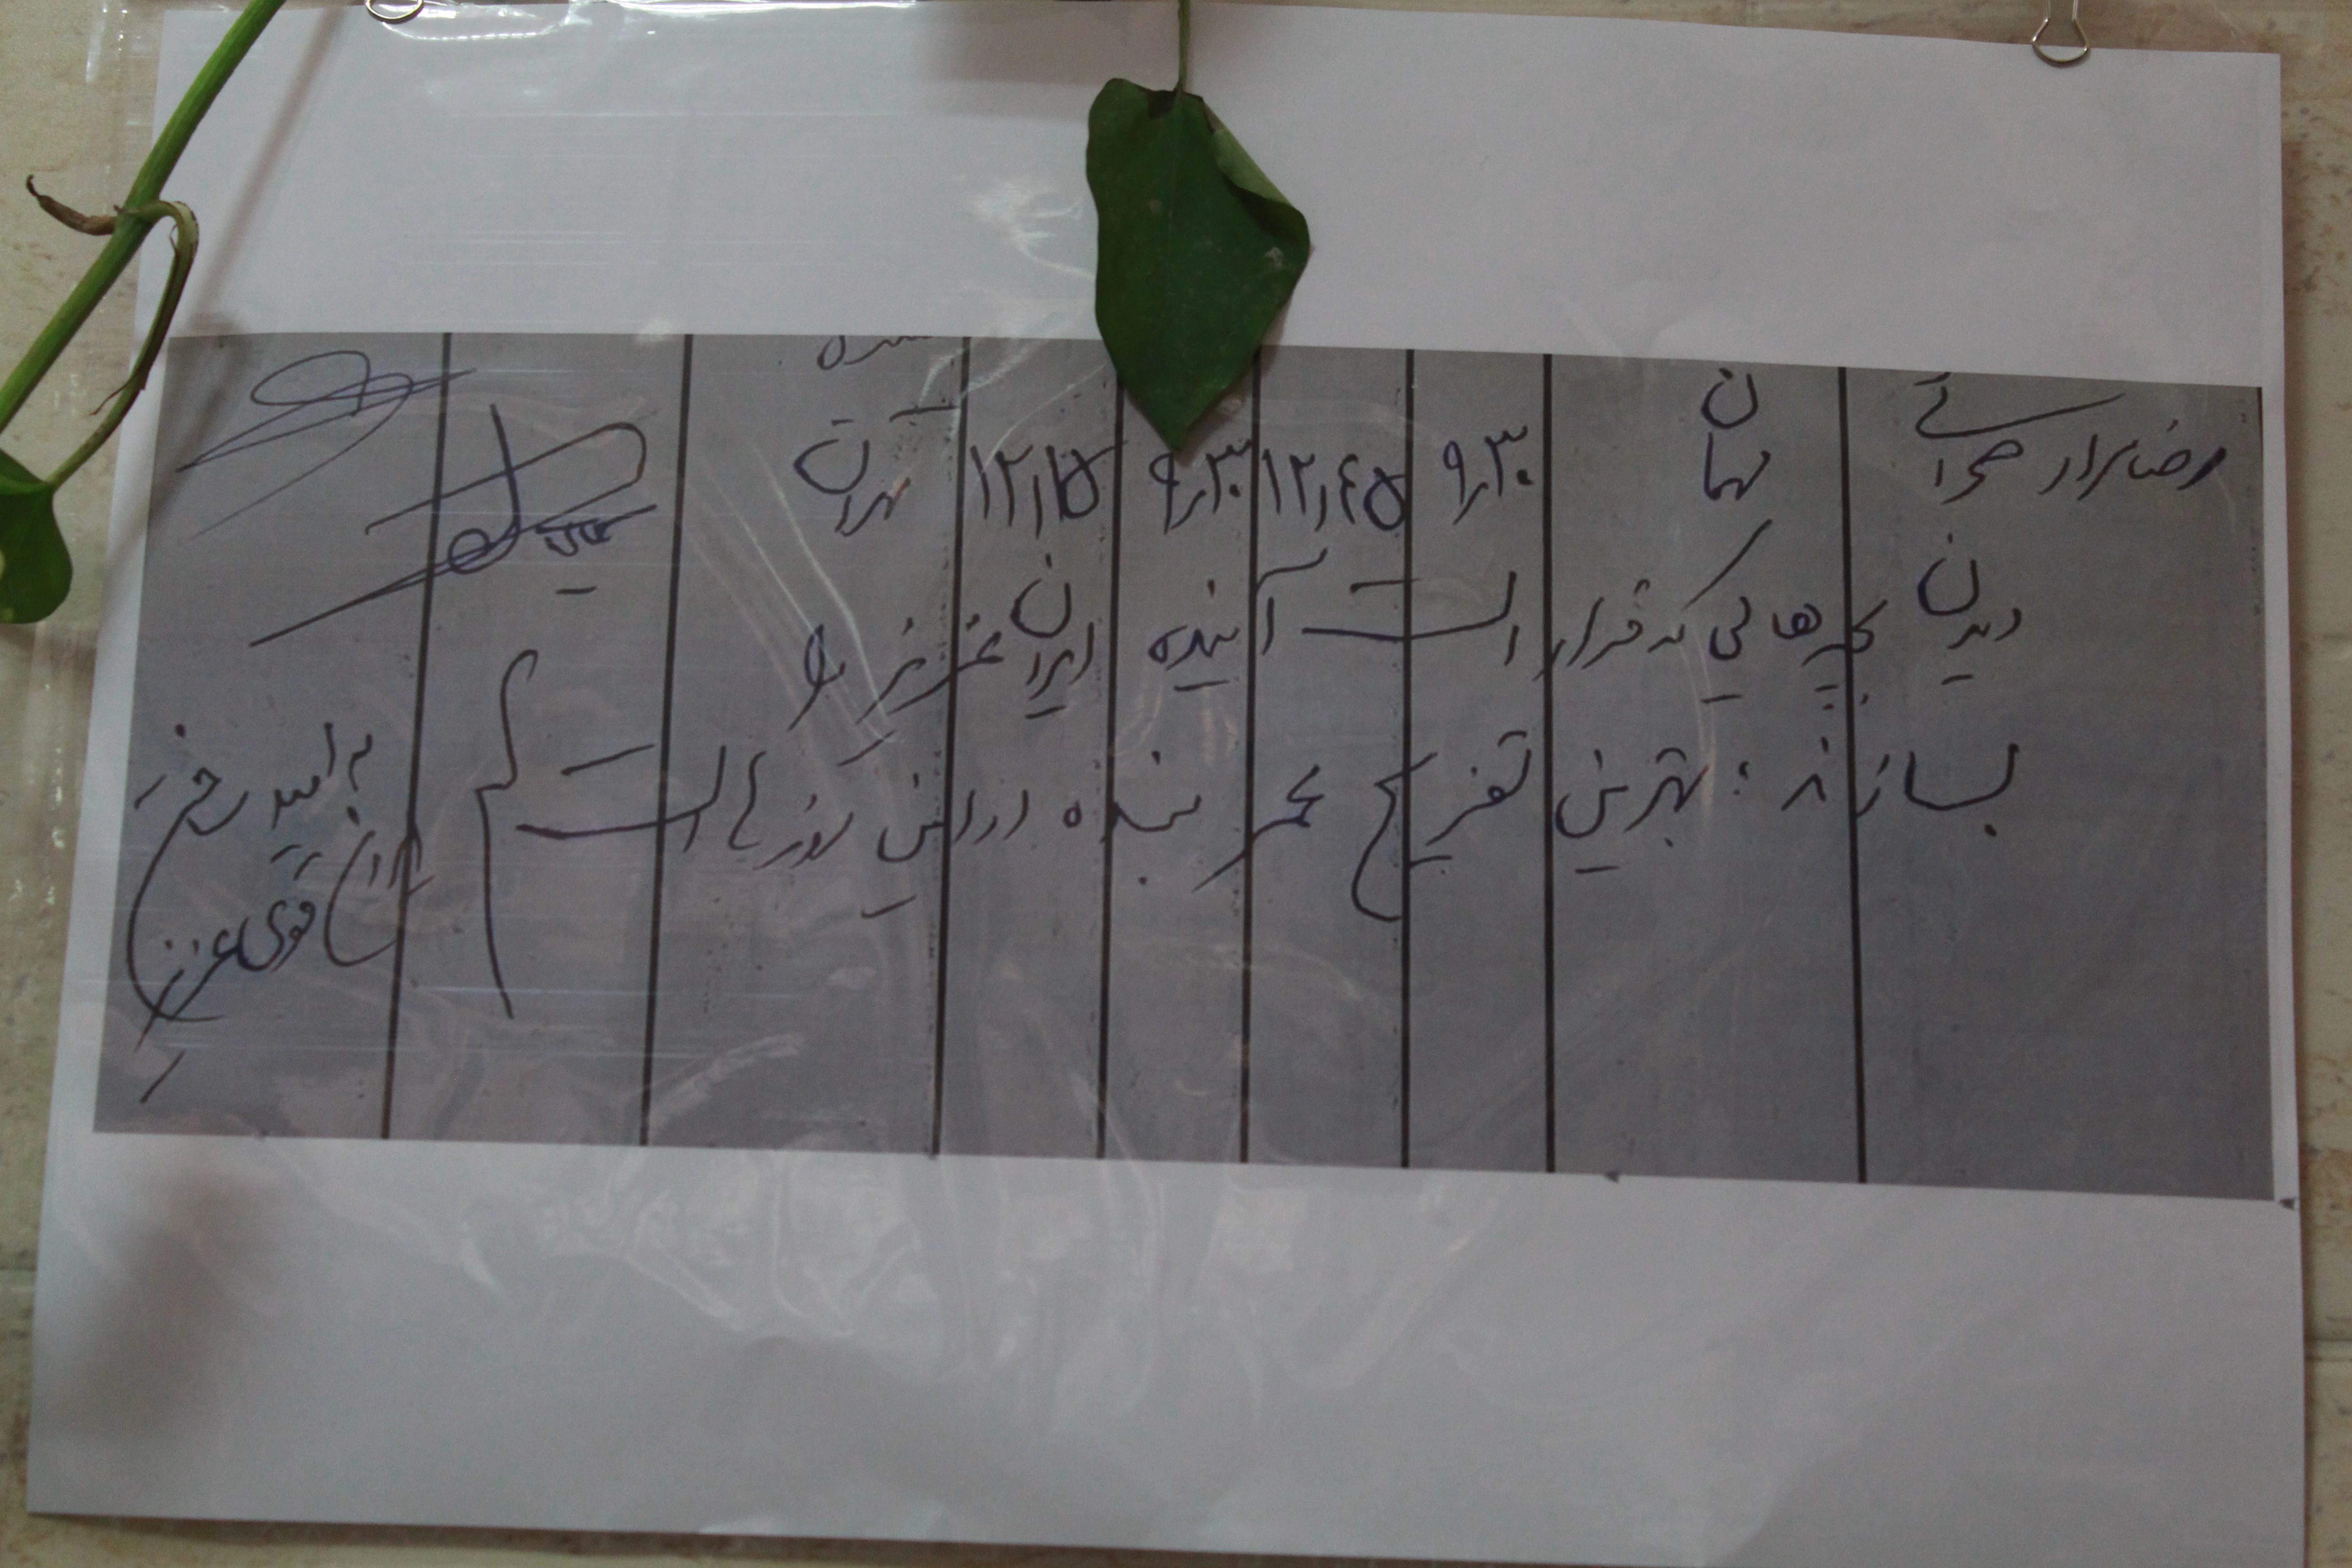 رضا برادر صحرائی مهمان ۹٫۳۰ ۱۲٫۴۵ ۹٫۳۰ ۱۲٫۱۵ تهران
دیدن بچه هائی که قرار است آینده ایران عزیز را
بسازند؛ بهترین تفریح عمر بنده در این روزها است
به امید
ایران قوی عزیز